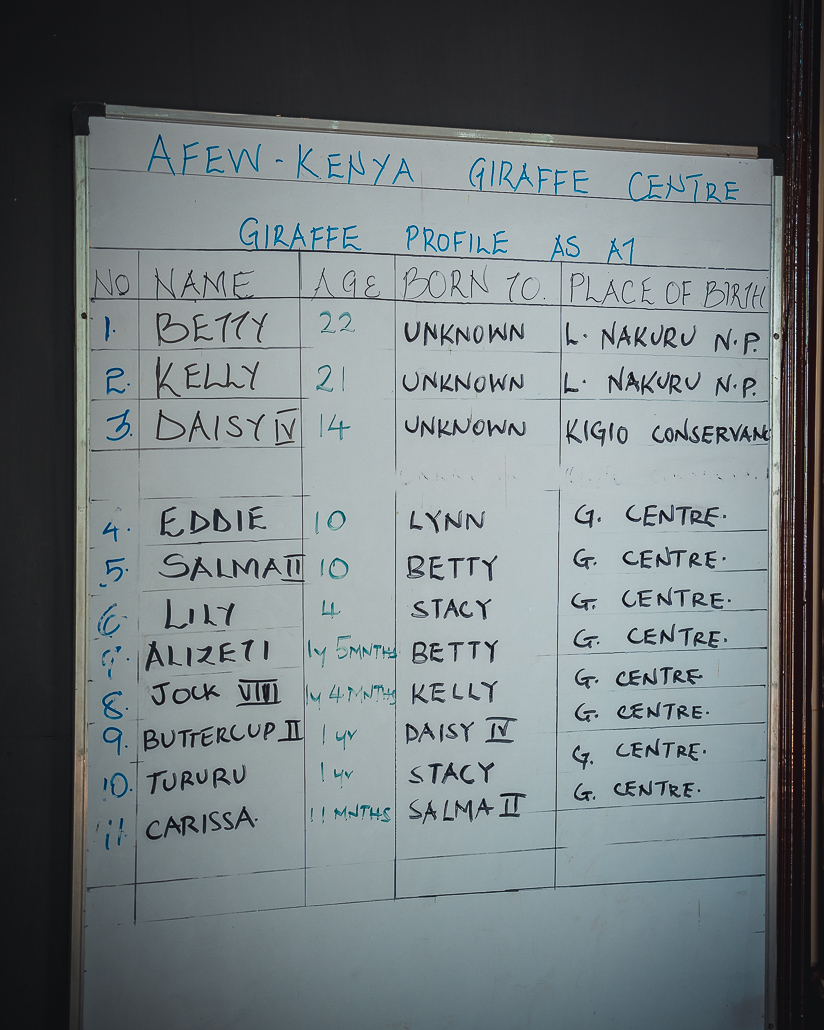 AFEW-KENYA GIRAFFE CENTRE
GIRAFFE PROFILE AS AT
NO NAME AGE BORN TO. PLACE OF BIRTH
1. BETTY 22 UNKNOWN L. NAKURU N.P.
2. KELLY 21 UNKNOWN L. NAKURU N.P.
3. DAISY IV 14 UNKNOWN KIGIO CONSERVANC
4. EDDIE 10 LYNN G. CENTRE.
5. SALMA II 10 BETTY G. CENTRE.
6 LILY 4 STACY G. CENTRE.
7. ALIZETI 1y 5MNTHS BETTY G. CENTRE.
8. JOCK VIII 1y 4MNTHS KELLY G. CENTRE
9. BUTTERCUP II 1 yr DAISY IV G. CENTRE.
10. TURURU 1 yr STACY G. CENTRE.
11 CARISSA. 11 MNTHS SALMA II G. CENTRE.